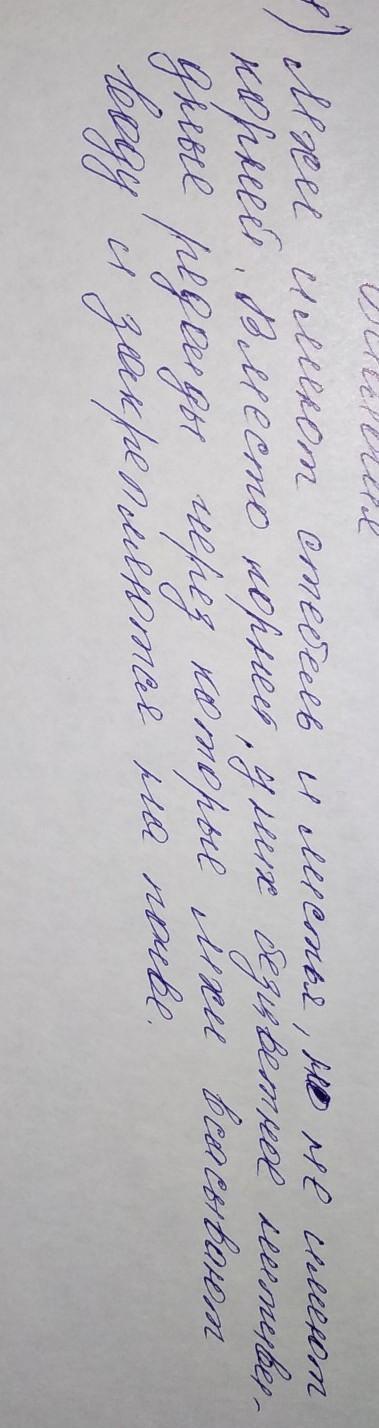 Мхи имеют стебель и листья, но не имеют
корней. Вместо корней, у них бесцветные
ризоиды через которые мхи всасывают
воду и закрепляются на почве.